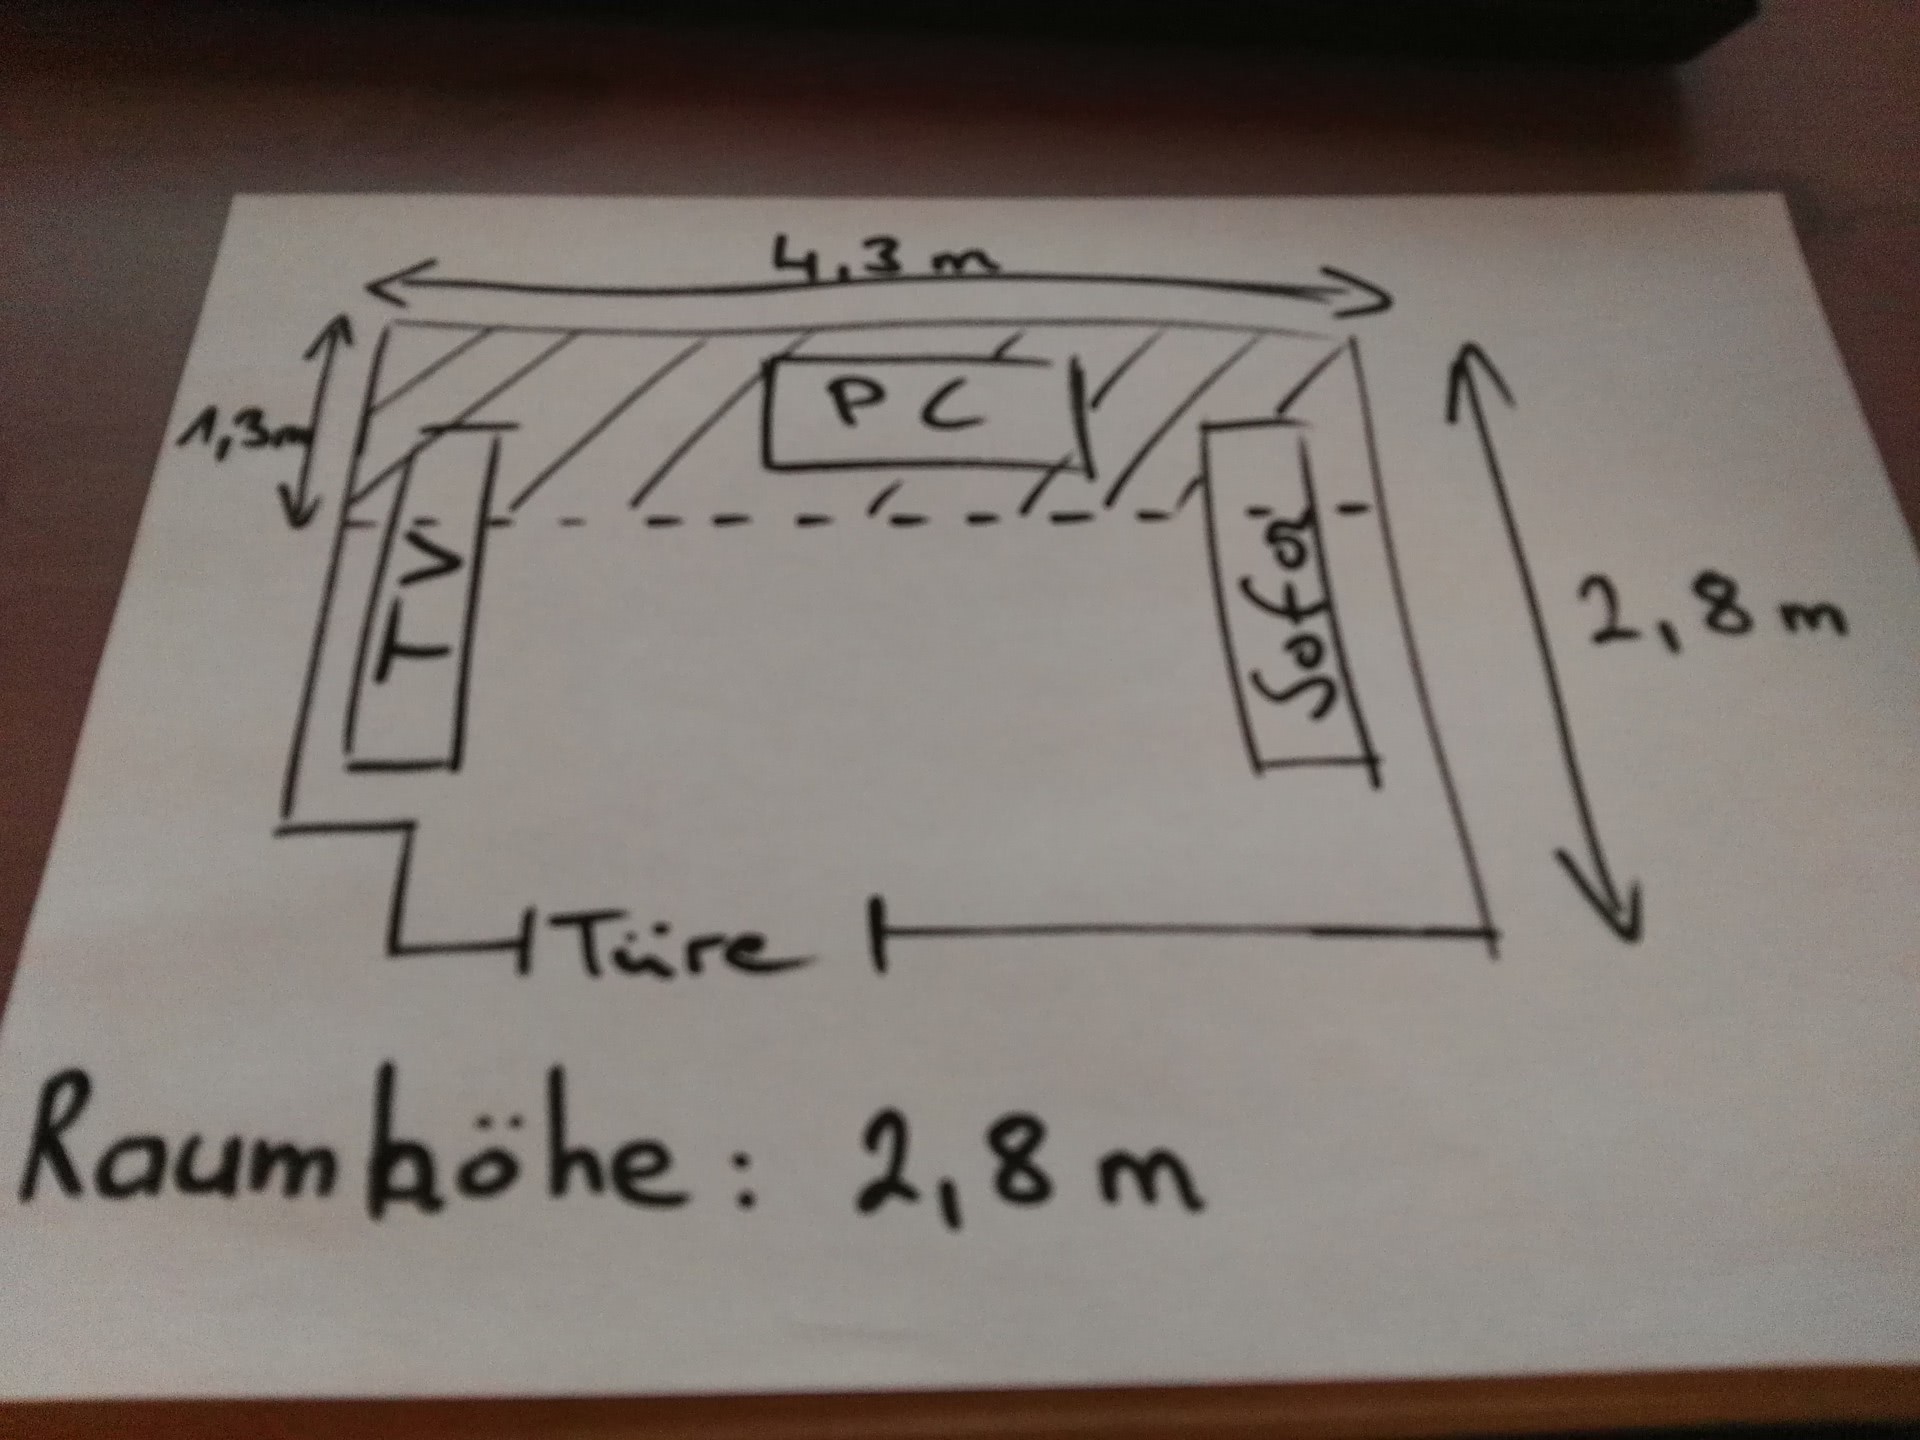 4,3 m
1,3m
PC
TV
Sofa
2,8 m
Türe
Raumhöhe: 2,8 m